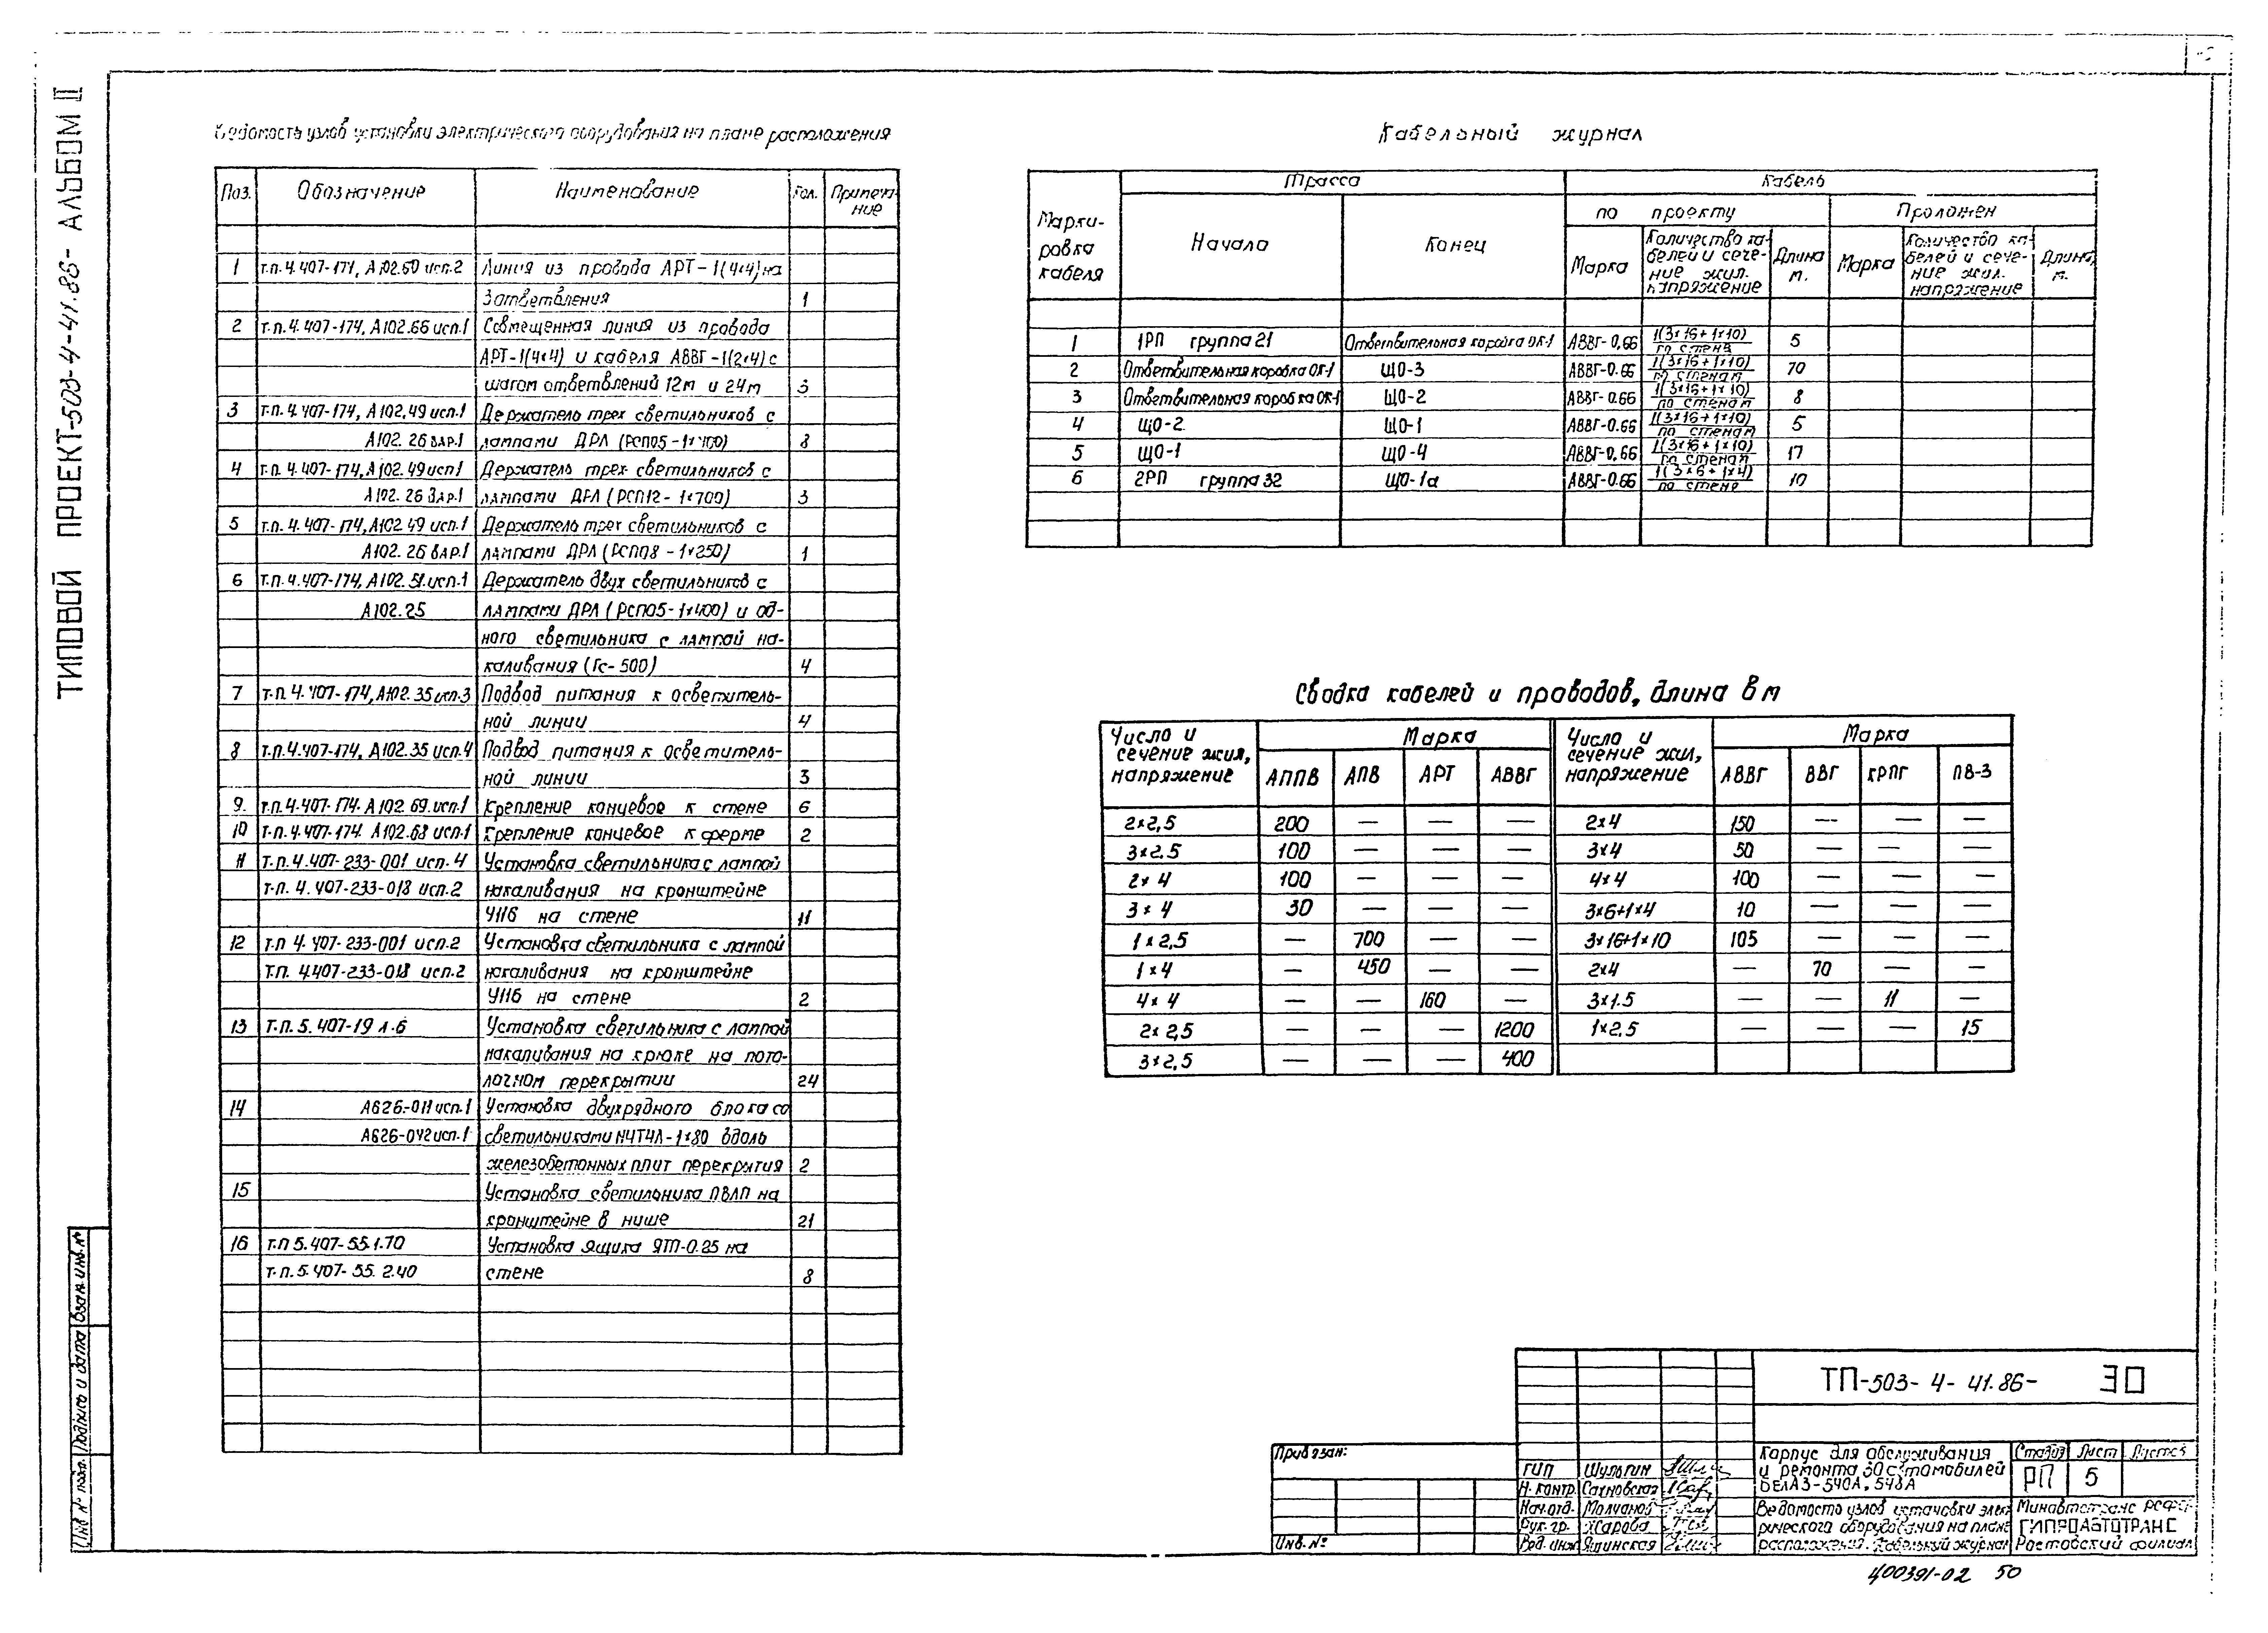 ТИПОВОЙ ПРОЕКТ-503-4-41.86- АЛЬБОМ II
Ведомость узлов установки электрического оборудования на плане расположения
Поз. Обозначение Наименование Кол. Примечание
1 т.п.4.407-171, А102.60 исп.2 Линия из провода АРТ-1(4×4) на
3 ответвления 1
2 т.п.4.407-174, А102.66 исп.1 Совмещенная линия из провода
АРТ-1(4×4) и кабеля АВВГ-1(2×4) с
шагом ответвлений 12м и 24м 3
3 т.п.4.407-174, А102.49 исп.1 Держатель трех светильников с
А102.26 вар.1 лампами ДРЛ (РСП05-1×400) 8
4 т.п.4.407-174, А102.49 исп1 Держатель трех светильников с
А102.26 вар.1 лампами ДРЛ (РСП12-1×700) 3
5 т.п.4.407-174, А102.49 исп.1 Держатель трех светильников с
А102.26 вар.1 лампами ДРЛ (РСП08-1×250) 1
6 т.п.4.407-174, А102.51.исп.1 Держатель двух светильников с
А102.25 лампами ДРЛ (РСП05-1×400) и од-
ного светильника с лампой на-
каливания (Гс-500) 4
7 т.п.4.407-174, А102.35 исп.3 Подвод питания к осветитель-
ной линии 4
8 т.п.4.407-174, А102.35 исп.4 Подвод питания к осветитель-
ной линии 3
9. т.п.4.407-174. А102.69.исп.1 Крепление концевое к стене 6
10 т.п.4.407-174. А102.68 исп.1 Крепление концевое к ферме 2
11 т.п.4.407-233-001 исп.4 Установка светильника с лампой
т.п.4.407-233-018 исп.2 накаливания на кронштейне
У116 на стене 11
12 т.п 4.407-233-001 исп.2 Установка светильника с лампой
т.п. 4.407-233-018 исп.2 накаливания на кронштейне
У116 на стене 2
13 т.п.5.407-19 л.6 Установка светильника с лампой
накаливания на крюке на пото-
лочном перекрытии 24
14 А626-011 исп.1 Установка двухрядного блока со
А626-042 исп.1 светильниками Н4Т4Л-1×80 вдоль
железобетонных плит перекрытия 2
15 Установка светильника ПВЛП на
кронштейне в нише 21
16 т.п 5.407-55.1.70 Установка ящика ЯТП-0.25 на
т.п.5.407-55.2.40 стене 8
Кабельный журнал
Марки-
ровка
кабеля
Трасса Кабель
Начало Конец
по проекту Проложен
Марка Количество ка-
белей и сече-
ние жил.
напряжение Длина
м. Марка Количество ка-
белей и сече-
ние жил.
напряжение Длина,
м.
1 1РП группа 21 Ответвительная коробка ОК-1 АВВГ-0,66 1(3×16+1×10) по стене 5
2 Ответвительная коробка ОК-1 ЩО-3 АВВГ-0.66 1(3×16+1×10) по стенам 70
3 Ответвительная коробка ОК-1 ЩО-2 АВВГ-0.66 1(3×16+1×10) по стенам 8
4 ЩО-2 ЩО-1 АВВГ-0.66 1(3×16+1×10) по стенам 5
5 ЩО-1 ЩО-4 АВВГ-0.66 1(3×16+1×10) по стенам 17
6 2РП группа 32 ЩО-1а АВВГ-0.66 1(3×6+1×4) по стене 10
Сводка кабелей и проводов, длина в м
Число и
сечение жил,
напряжение
Марка
Число и
сечение жил,
напряжение
Марка
АППВ АПВ АРТ АВВГ АВВГ ВВГ КРПГ ПВ-3
2×2,5 200 — — — 2×4 150 — — —
3×2.5 100 — — — 3×4 50 — — —
2×4 100 — — — 4×4 100 — — —
3×4 30 — — — 3×6+1×4 10 — — —
1×2,5 — 700 — — 3×16+1×10 105 — — —
1×4 — 450 — — 2×4 — 70 — —
4×4 — — 160 — 3×1.5 — — 11 —
2×2,5 — — — 1200 1×2,5 — — — 15
3×2,5 — — — 400
Взам.инв.№
Подпись и дата
Инв № подл.
Привязан:
Инв.№
ТП-503-4-41.86- ЭО
ГИП Шульгин
Н.контр. Сахновская
Нач.отд. Молчанов
Рук.гр. Жарова
Вед.инж Яшинская
Корпус для обслуживания
и ремонта 30 автомобилей
БЕЛАЗ-540А, 548А
Стадия Лист Листов
РП 5
Ведомость узлов установки элект
рического оборудования на плане
расположения. Кабельный журнал
Минавтотранс РСФСР
ГИПРОАВТОТРАНС
Ростовский филиал
400391-02 50